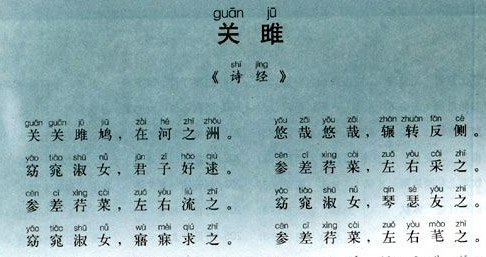 guān jū
关 雎
shī jīng
《诗 经》
guān guān jū jiū zài hé zhī zhōu
关 关 雎 鸠，在 河 之 洲。
yǎo tiǎo shū nǚ jūn zǐ hǎo qiú
窈 窕 淑 女，君 子 好 逑。
cēn cī xìng cài zuǒ yòu liú zhī
参 差 荇 菜，左 右 流 之。
yǎo tiǎo shū nǚ wù mèi qiú zhī
窈 窕 淑 女，寤 寐 求 之。
yōu zāi yōu zāi zhǎn zhuǎn fǎn cè
悠 哉 悠 哉，辗 转 反 侧。
cēn cī xìng cài zuǒ yòu cǎi zhī
参 差 荇 菜，左 右 采 之。
yǎo tiǎo shū nǚ qín sè yǒu zhī
窈 窕 淑 女，琴 瑟 友 之。
cēn cī xìng cài zuǒ yòu mào zhī
参 差 荇 菜，左 右 芼 之。